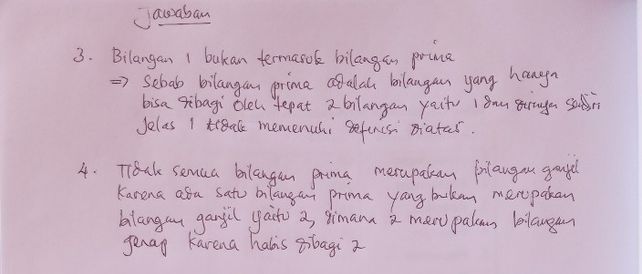 Jawaban
3. Bilangan 1 bukan termasuk bilangan prima
=> Sebab bilangan prima adalah bilangan yang hanya
bisa dibagi oleh tepat 2 bilangan yaitu 1 dan dirinya sendiri
Jelas 1 tidak memenuhi definisi diatas.
4. Tidak semua bilangan prima merupakan bilangan ganjil
Karena ada satu bilangan prima yang bukan merupakan
bilangan ganjil yaitu 2, dimana 2 merupakan bilangan
genap karena habis dibagi 2